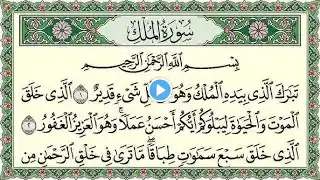 سُورَةُ الْمُلْكِ
بِسْمِ اللَّهِ الرَّحْمَٰنِ الرَّحِيمِ
تَبَارَكَ الَّذِي بِيَدِهِ الْمُلْكُ وَهُوَ لِّ شَيْءٍ قَدِيرٌ ١ الَّذِي خَلَقَ
الْمَوْتَ وَالْحَيَاةَ لِيَبْلُوَكُمْ أَيُّكُمْ أَحْسَنُ عَمَلًا ۚ وَهُوَ الْعَزِيزُ الْغَفُورُ ٢
الَّذِي خَلَقَ سَبْعَ سَمَاوَاتٍ طِبَاقًا ۖ مَا تَرَىٰ فِي خَلْقِ الرَّحْمَٰنِ مِن